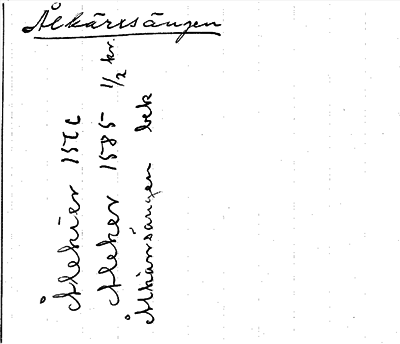 Ålkärrsängen
Ålekier 1576
Aleker 1585 1/2 kr.
Ålkärrsängen bek